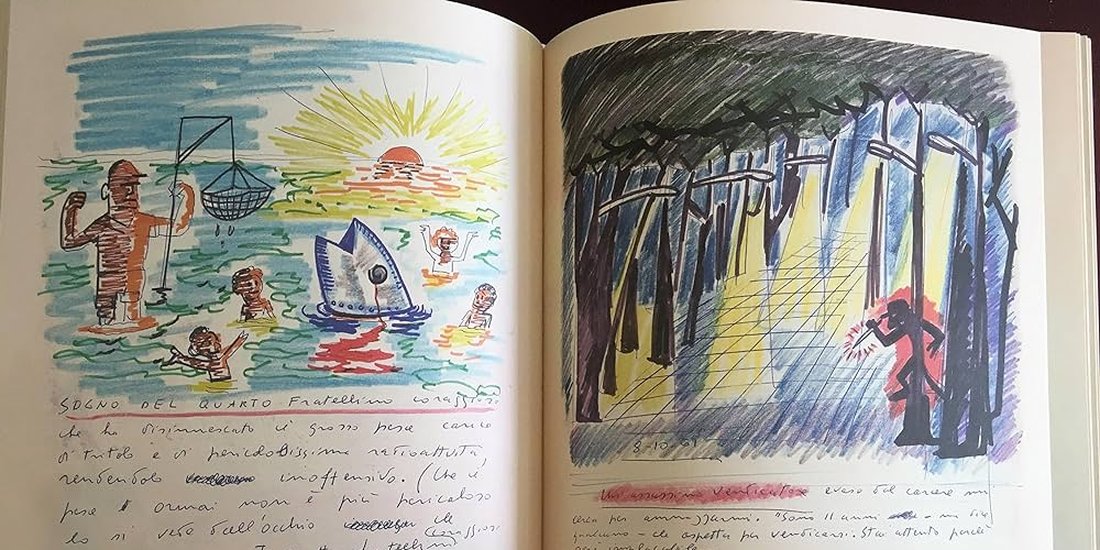 SOGNO DEL QUARTO Fratellino coraggioso
che ha disinnescato il grosso pesce carico
di tritolo e di pericolosissima radioattività,
rendendolo inoffensivo. (Che il
pesce ormai non è più pericoloso
lo si vede dall'occhio che
8-10-61
Un assassino vendicatore evaso dal carcere mi
cerca per ammazzarmi. "Sono 11 anni - mi dice
qualcuno - che aspetta per vendicarsi. Stai attento perché